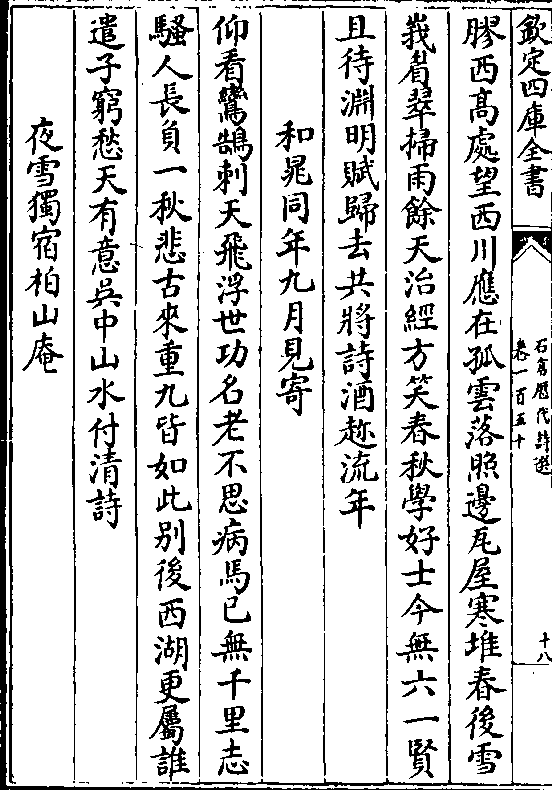 欽定四庫全書
石倉歷代詩選
卷一百五十
十八
膠西髙處望西川應在孤雲落照邊瓦屋寒堆春後雪
峩眉翠掃雨餘天治經方笑春秋學好士今無六一賢
且待淵明賦歸去共將詩酒趂流年
和晁同年九月見寄
仰看鸞鵠刺天飛浮世功名老不思病馬已無千里志
騷人長負一秋悲古來重九皆如此别後西湖更屬誰
遣子窮愁天有意吳中山水付清詩
夜雪獨宿柏山庵